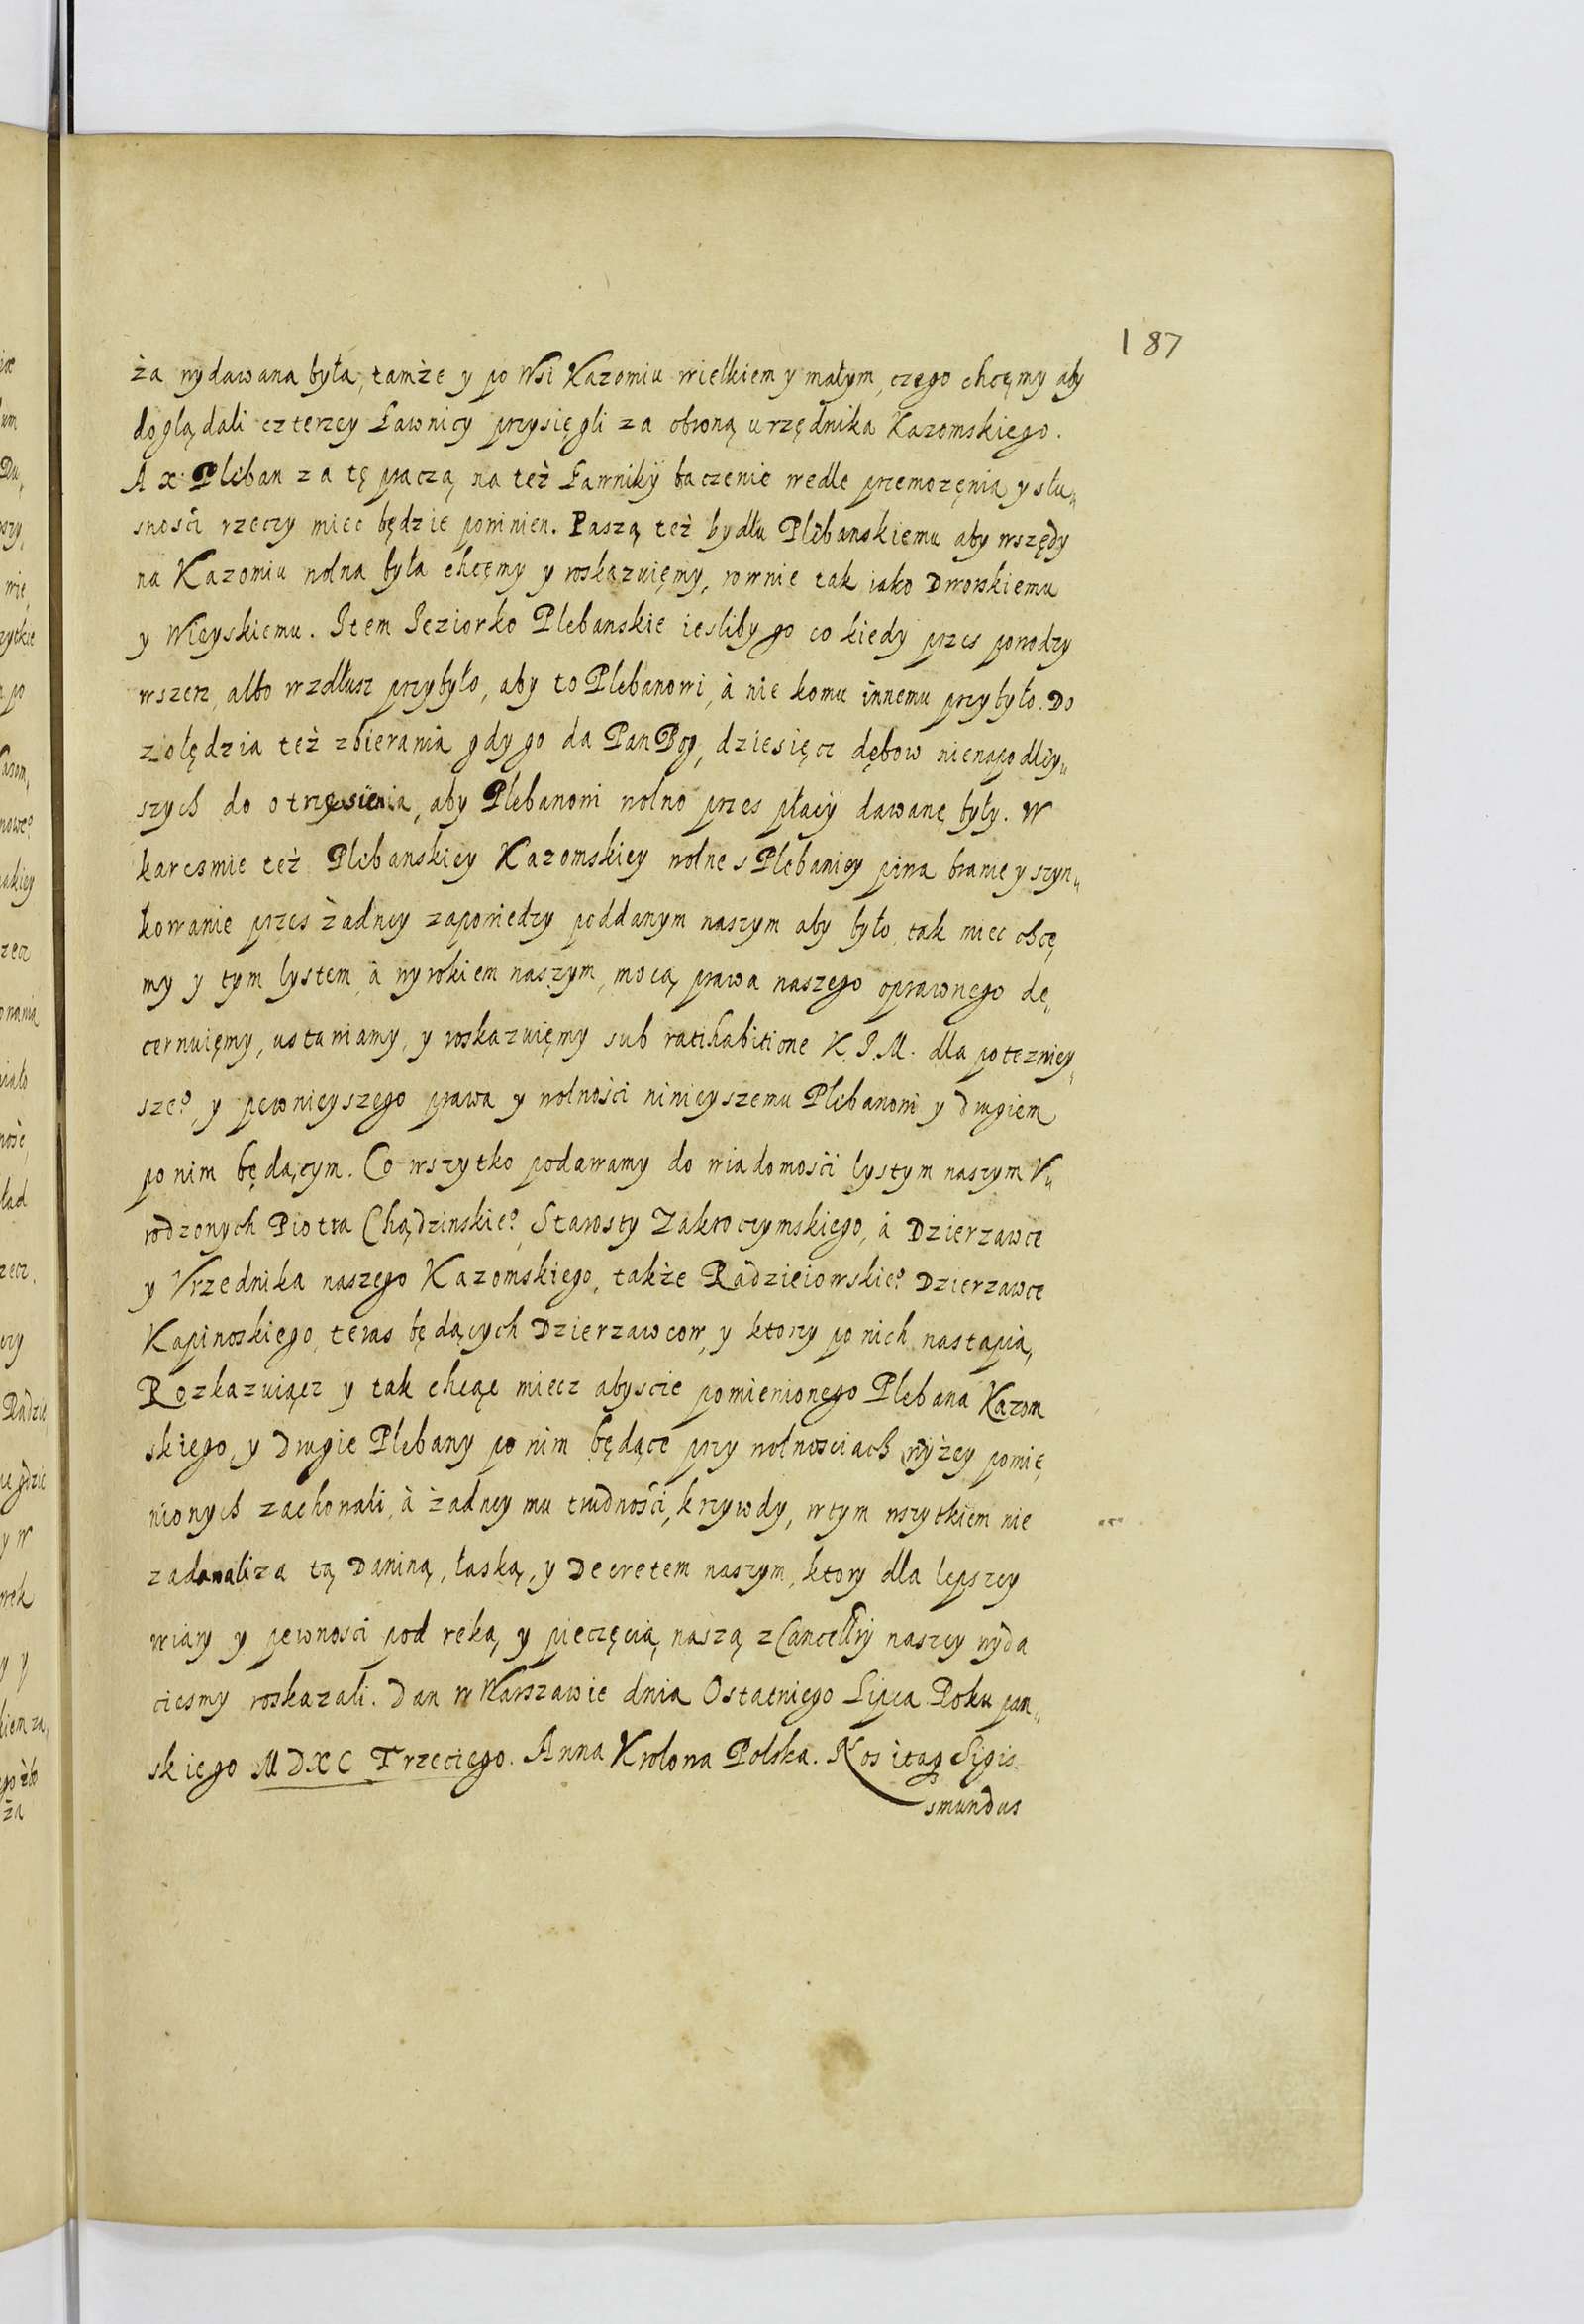 187
ża wydawana była, tamże y po Wsi Kazomiu wielkiem y małym, czego chcęmy aby
doglądali czterzey Ławnicy przysięgli za obroną urzędnika Kazomskiego.
A x. Pleban za tę praczą na też Ławniky baczenie wedle przemozęnia y słu„
snosći rzeczy miec będzie powinien. Paszą też bydłu Plebanskiemu aby wszędy
na Kazomiu wolna była chcęmy y roskazuięmy, rownie tak iako Dworskiemu
y Wieyskiemu. Item Ieziorko Plebanskie iesliby go co kiedy przes powodzy
wszerz, albo wzdłusz przybyło, aby to Plebanowi, à nie komu innemu przybyło. Do
zolędzia też zbierania gdy go da Pan Bog, dziesięcz dębow nienapodley„
szych do otrzęsienia, aby Plebanowi wolno przes płacy dawane były. W
karcsmie też Plebanskiey Kazomskiey wolne s Plebaniey piwa branie y szyn„
kowanie przes żadney zapowiedzy poddanym naszym aby było, tak miec chcę
my y tym lystem, à wyrokiem naszym, mocą prawa naszego oprawnego de„
cernuięmy, ustawiamy, y roskazuięmy sub ratihabitione K. I. M. dla potezniey„
sze° y pewnieyszego prawa y wolnośći ninieyszemu Plebanowi y drugiem
po nim będącym. Co wszytko podawamy do wiadomośći lystym naszym V„
rodzonych Piotra Chądzinskie°, Starosty Zakroczymskiego, à Dzierzawce
y Vrzednika naszego Kazomskiego, także Radzieiowskie° Dzierzawce
Kapinoskiego, teras będących Dzierzawcow, y ktorzy po nich nastąpią,
Rozkazuiącz y tak chcąc miecz abyscie pomienionego Plebana Kazom
skiego, y drugie Plebany po nim będące przy wolnosciach wyżey pomie„
nionych zachowali, à żadney mu trudnośći, krzywdy, w tym wszytkiem nie
zadawali za tą Daniną, łaską, y Decretem naszym, ktory dla lepszey
wiary y pewnosci pod reką y pieczęcią naszą z Cancellrÿ naszey wyda
ciesmy roskazali. Dan w Warszawie dnia Ostatniego Lipca Roku pan„
skiego MDXC Trzeciego. Anna Krolowa Polska. Nos itaq Sigis
smundus